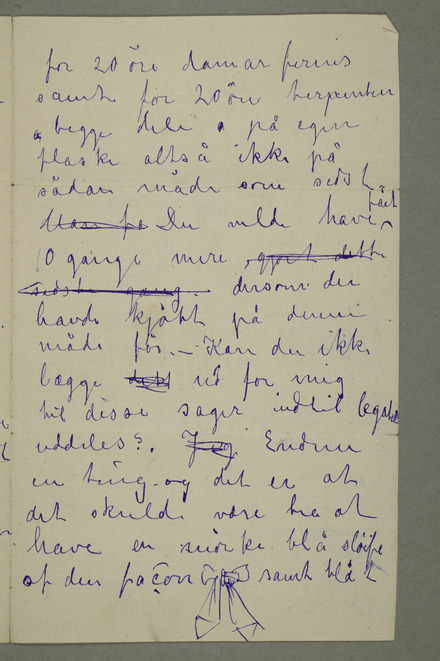 for 20 öre damar fernis
samt for 20 öre terpentin
begge dele på egen
flaske altså ikke på
sådan måde som sidst
Du vilde have fåt
10 gange mere gjort dette
sidste gang dersom du
havde kjöbt på denne
måde för. – Kan du ikke
lægge ud for mig
til disse sager indtil legatet
uddeles?. Jeg Endnu
en ting – og det er at
det skulde være bra at
have en mörke blå slöife
af den façon samt blåt